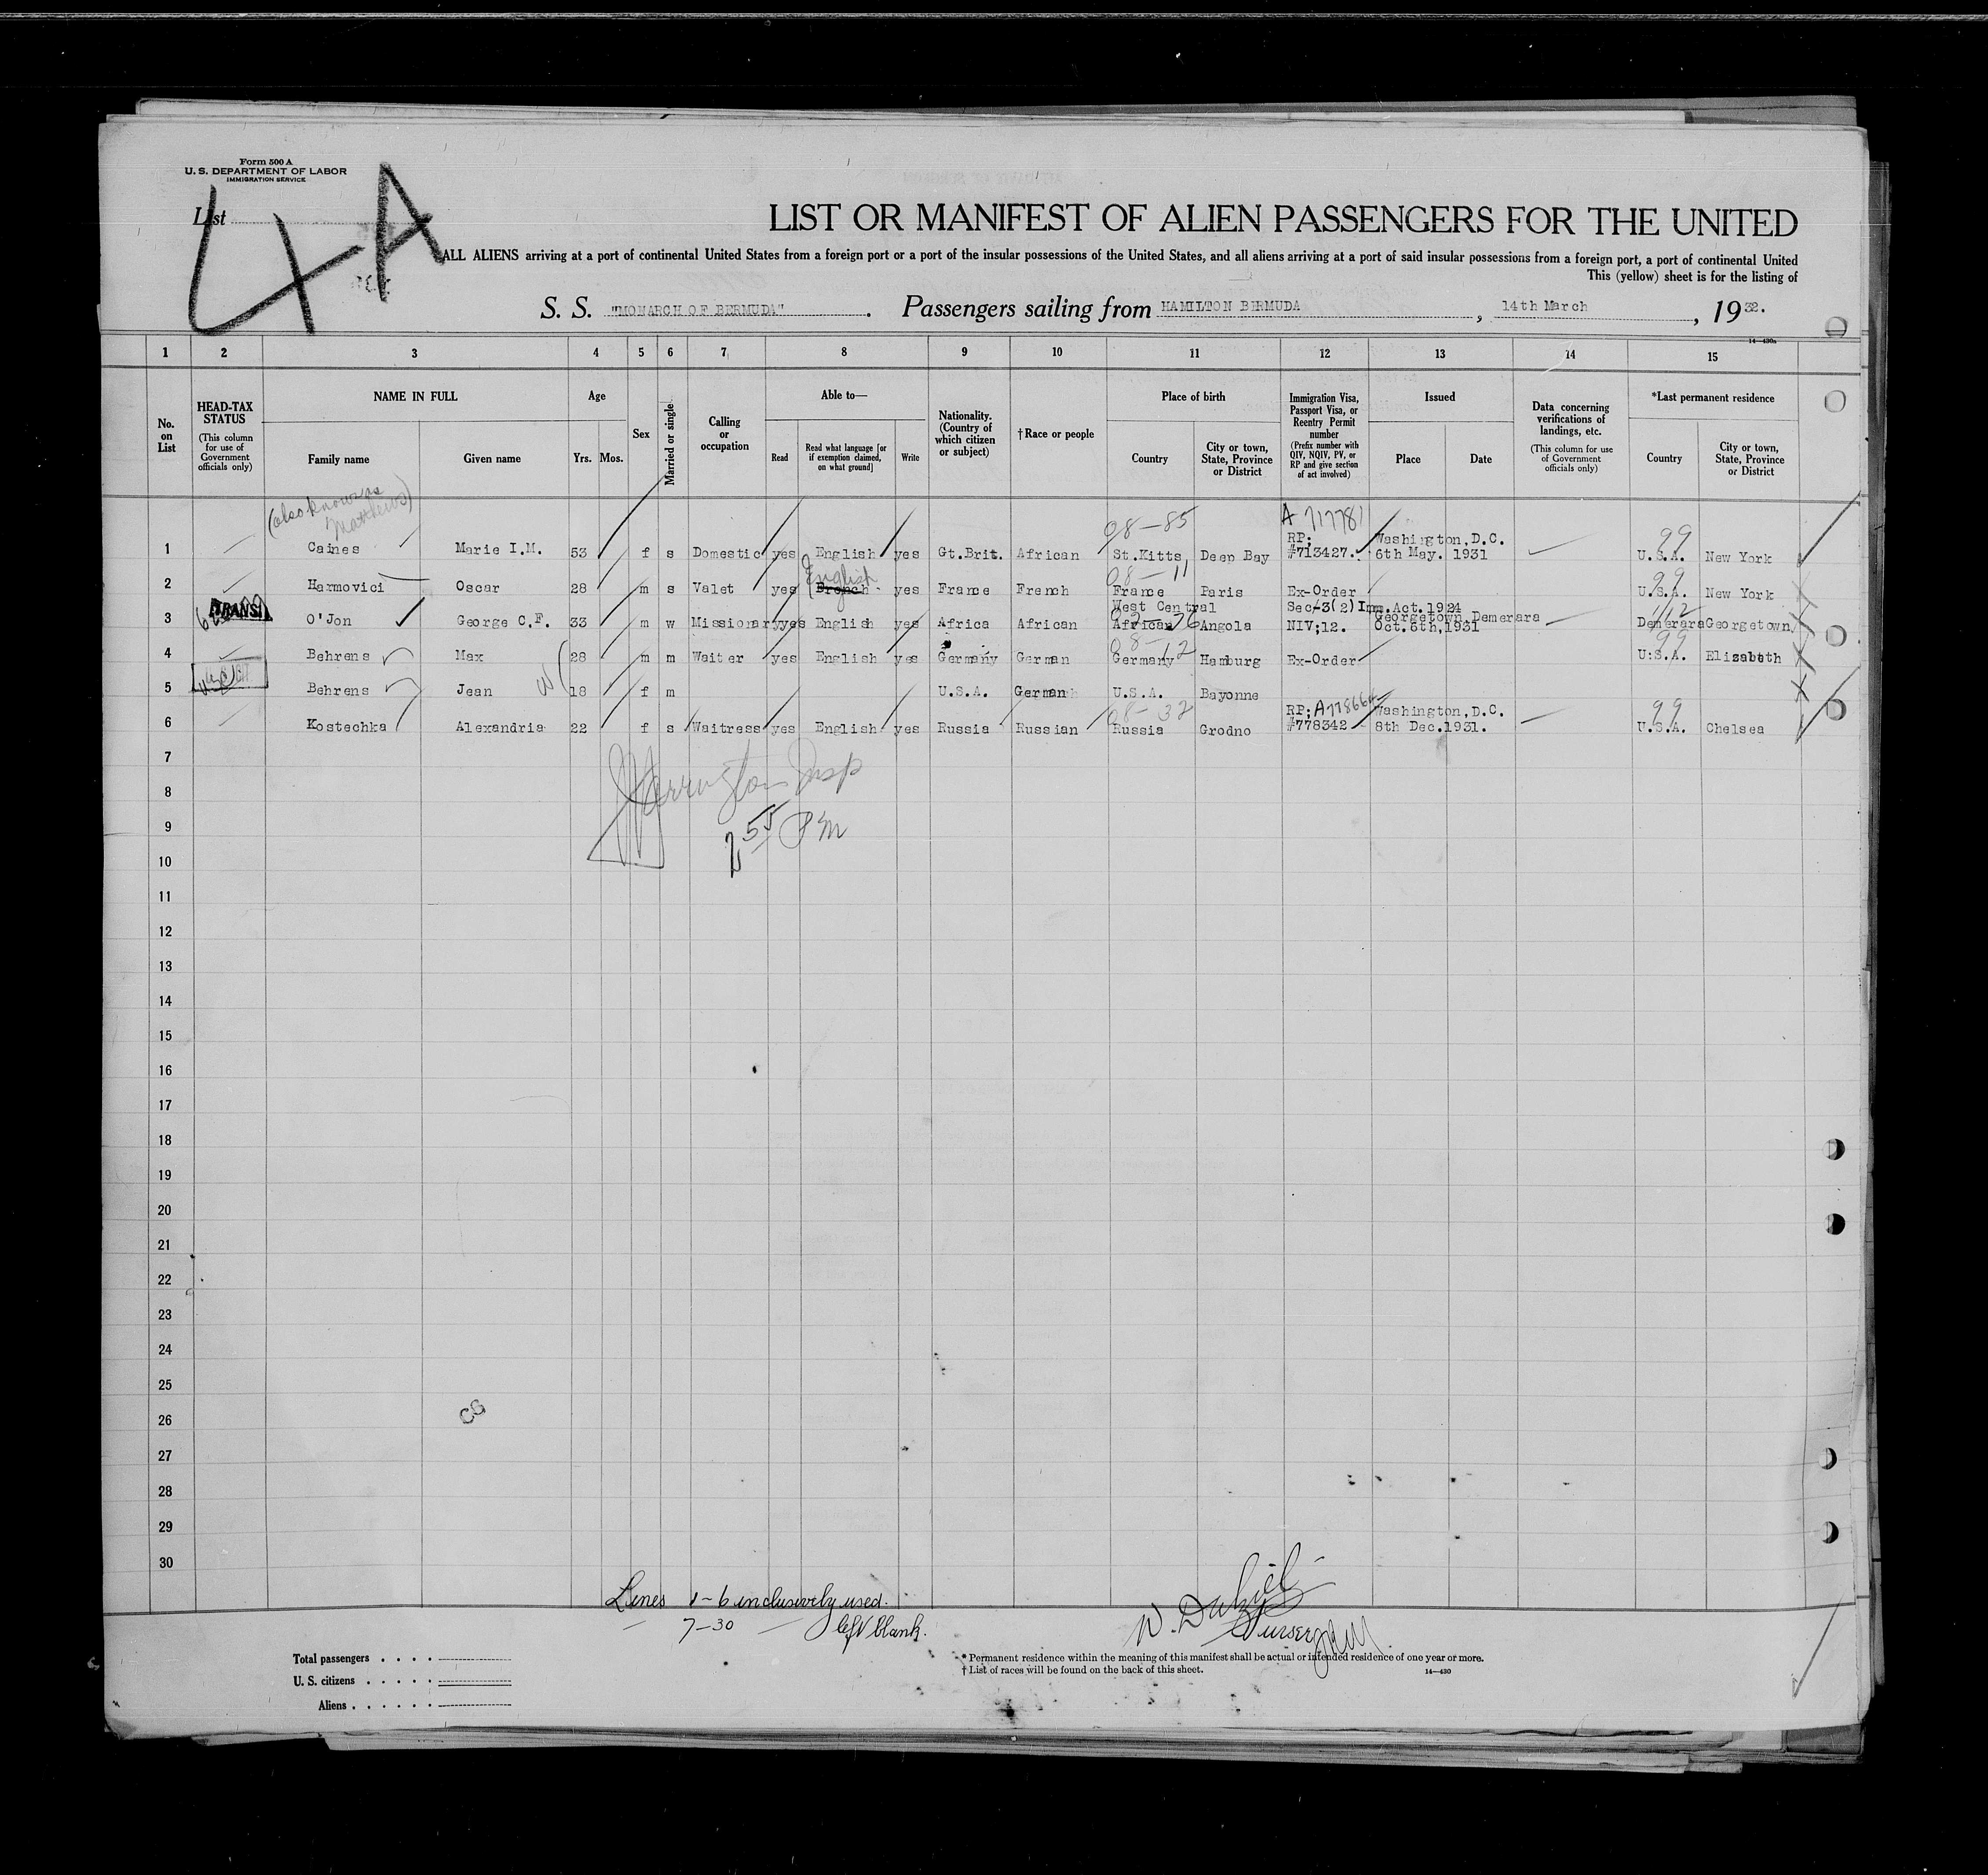 Form 500 A
U. S. DEPARTMENT OF LABOR
IMMIGRATION SERVICE
List
4-A
LIST OR MANIFEST OF ALIEN PASSENGERS FOR THE UNITED
ALL ALIENS arriving at a port of continental United States from a foreign port or a port of the insular possessions of the United States, and all aliens arriving at a port of said insular possessions from a foreign port, a port of continental United
This (yellow) sheet is for the listing of
S. S. "MONARCH OF BERMUDA". Passengers sailing from HAMILTON BERMUDA, 14th March, 1932.
14—430a
1 2 3 4 5 6 7 8 9 10 11 12 13 14 15
No. on List
HEAD-TAX STATUS (This column for use of Government officials only)
NAME IN FULL
Family name Given name
Age
Yrs. Mos.
Sex
Married or single
Calling or occupation
Able to—
Read
Read what language [or if exemption claimed, on what ground]
Write
Nationality. (Country of which citizen or subject)
†Race or people
Place of birth
Country
City or town, State, Province or District
Immigration Visa, Passport Visa, or Reentry Permit number (Prefix number with QIV, NQIV, PV, or RP and give section of act involved)
Issued
Place Date
Data concerning verifications of landings, etc. (This column for use of Government officials only)
*Last permanent residence
Country
City or town, State, Province or District
(also known as Matthews)
98-85 A 717781 99
1 Caines Marie I.M. 53 f s Domestic yes English yes Gt.Brit. African St.Kitts, Deep Bay RP; #713427. Washington,D.C. 6th May. 1931 U.S.A. New York
English 08-11 99
2 Harmovici Oscar 28 m s Valet yes French yes France French France Paris Ex-Order U.S.A. New York
TRANS. 112
3 O'Jon George C.F. 33 m w Missionary yes English yes Africa African West Central African Angola Sec-3(2)Imm.Act.1924 NIV;12. Georgetown Demerara Oct.6th,1931 Demerara Georgetown.
08-12 99
4 Behrens Max 28 m m Waiter yes English yes Germany German Germany Hamburg Ex-Order U.S.A. Elizabeth
5 Behrens Jean W 18 f m U.S.A. German U.S.A. Bayonne
08-32 99
6 Kostechka Alexandria 22 f s Waitress yes English yes Russia Russian Russia Grodno RP; #778342 Washington,D.C. 8th Dec.1931. U.S.A. Chelsea
7
Harrington Insp
8
9
2 55 PM
10
11
12
13
14
15
16
17
18
19
20
21
22
23
24
25
26
CG
27
28
29
30
Lines 1-6 inclusively used.
7-30 — left blank.
Purser
Total passengers
U. S. citizens
Aliens
* Permanent residence within the meaning of this manifest shall be actual or intended residence of one year or more.
† List of races will be found on the back of this sheet.
14—430